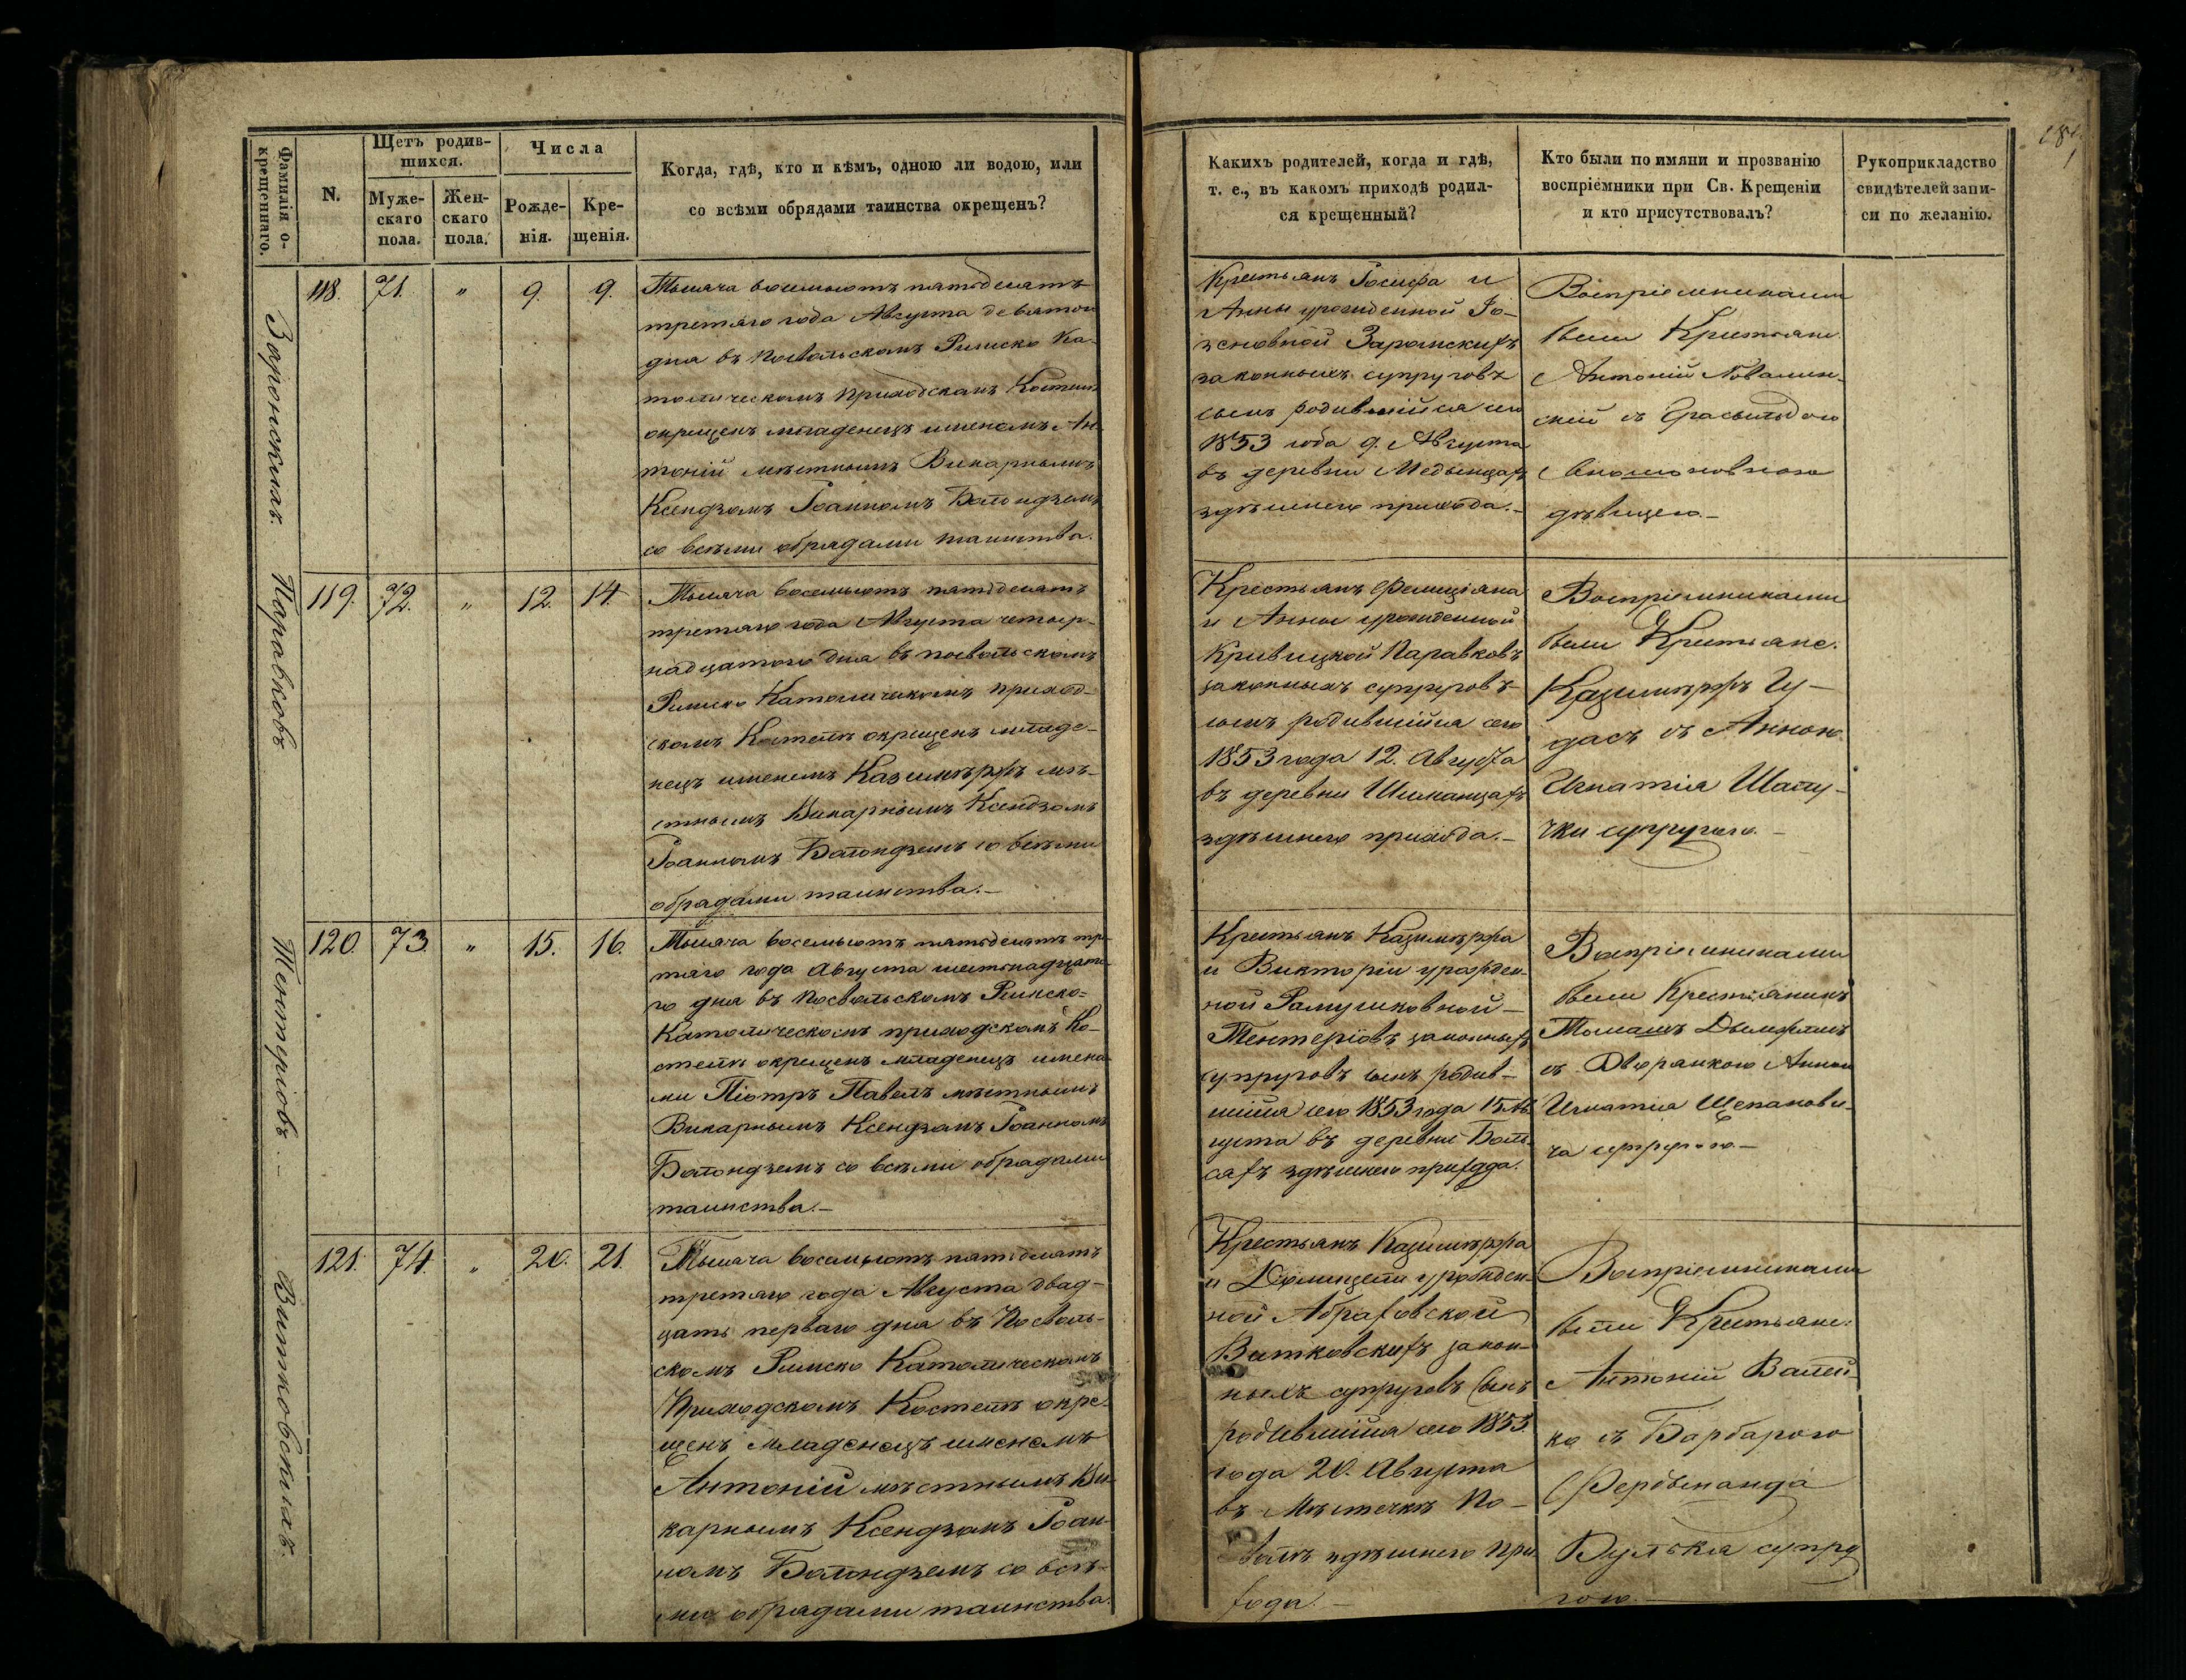 181
Фамилія о-
крещеннаго.
N.
Щетъ родив-
шихся.
Муже-
скаго
пола.
Жен-
скаго
пола.
Числа
Рожде-
нія.
Кре-
щенія.
Когда, гдѣ, кто и кѣмъ, одною ли водою, или
со всѣми обрядами таинства окрещенъ?
Какихъ родителей, когда и гдѣ,
т. е., въ какомъ приходѣ родил-
ся крещенный?
Кто были по имяни и прозванію
воспріемники при Св. Крещеніи
и кто присутствовалъ?
Рукоприкладство
свидѣтелей запи-
си по желанію.
Заронскихъ.
118. 71. " 9. 9.
Тысяча восемьсотъ пятьдесятъ
третяго года Августа девятого
дня въ Посвольскомъ Римско Ка-
толическомъ Приходскомъ Костел
окрещенъ младенецъ именемъ Ан-
тоній мѣстнымъ Викарнымъ
Ксендзомъ Іоанномъ
со всѣми обрядами таинства.
Крестьянъ Іосифа и
Анны урожденной
законныхъ супруговъ
сынъ родившійся сего
1853 года 9. Августа
въ деревни
здѣшнего прихода.-
Воспріемниками
были Крестьяне
Антоній
съ
дѣвицею.-
Паравковъ
119. 72. " 12. 14.
Тысяча восемьсотъ пятьдесятъ
третяго года Августа четыр-
надцатого дня въ Посвольскомъ
Римско Католическомъ приход-
скомъ Костелѣ окрещенъ младе-
нецъ именемъ Казимѣржъ мѣ-
стнымъ Викарнымъ Ксендзомъ
Іоанномъ со всѣми
обрядами таинства.-
Крестьянъ Фелиціяна
и Анны урожденной
Кривицкой Паравковъ
законныхъ супруговъ
сынъ родившійся сего
1853 года 12. Августа
въ деревни Шиманцахъ
здѣшнего прихода.-
Воспріемниками
были Крестьяне.
Казимѣржъ Гу-
дасъ съ Анною
Игнатія Шапу-
чки супругою.-
Тентеріовъ.-
120. 73. " 15. 16.
Тысяча восемьсотъ пятьдесятъ тре-
тяго года Августа шестнадцато-
го дня въ Посвольскомъ Римско-
Католическомъ приходскомъ Ко-
стелѣ окрещенъ младенецъ имена-
ми Піотръ Павелъ мѣстнымъ
Викарнымъ Ксендзомъ Іоанномъ
со всѣми обрядами
таинства.-
Крестьянъ Казимѣржа
и Викторіи урожден-
ной Рамушковной-
Тентеріовъ законныхъ
супруговъ сынъ родив-
шійся сего 1853 года 15 Ав-
густа въ деревни
здѣшнего прихода.
Воспріемниками
были Крестьянинъ
Томашъ
съ Дворанкою Анною
Игнатія Щепанови-
ча супругою-
Витковскихъ.
121. 74. " 20. 21.
Тысяча восемьсотъ пятьдесятъ
третяго года Августа двад-
цать перваго дня въ Посволь-
скомъ Римско Католическомъ
Приходскомъ Костелѣ окре-
щенъ младенецъ именемъ
Антоній мѣстнымъ Ви-
карнымъ Ксендзомъ Іоан-
номъ со всѣ-
ми обрядами таинства.
Крестьянъ Казимѣржа
и урожден-
ной Абраховской
Витковскихъ закон-
ныхъ супруговъ сынъ
родившійся сего 1853
года 20. Августа
въ Мѣстечкѣ По-
волѣ здѣшнего При-
хода.-
Воспріемниками
были Крестьяне.
Антоній Валей-
ко съ Барбарою
Фердынанда
супру
гою.-